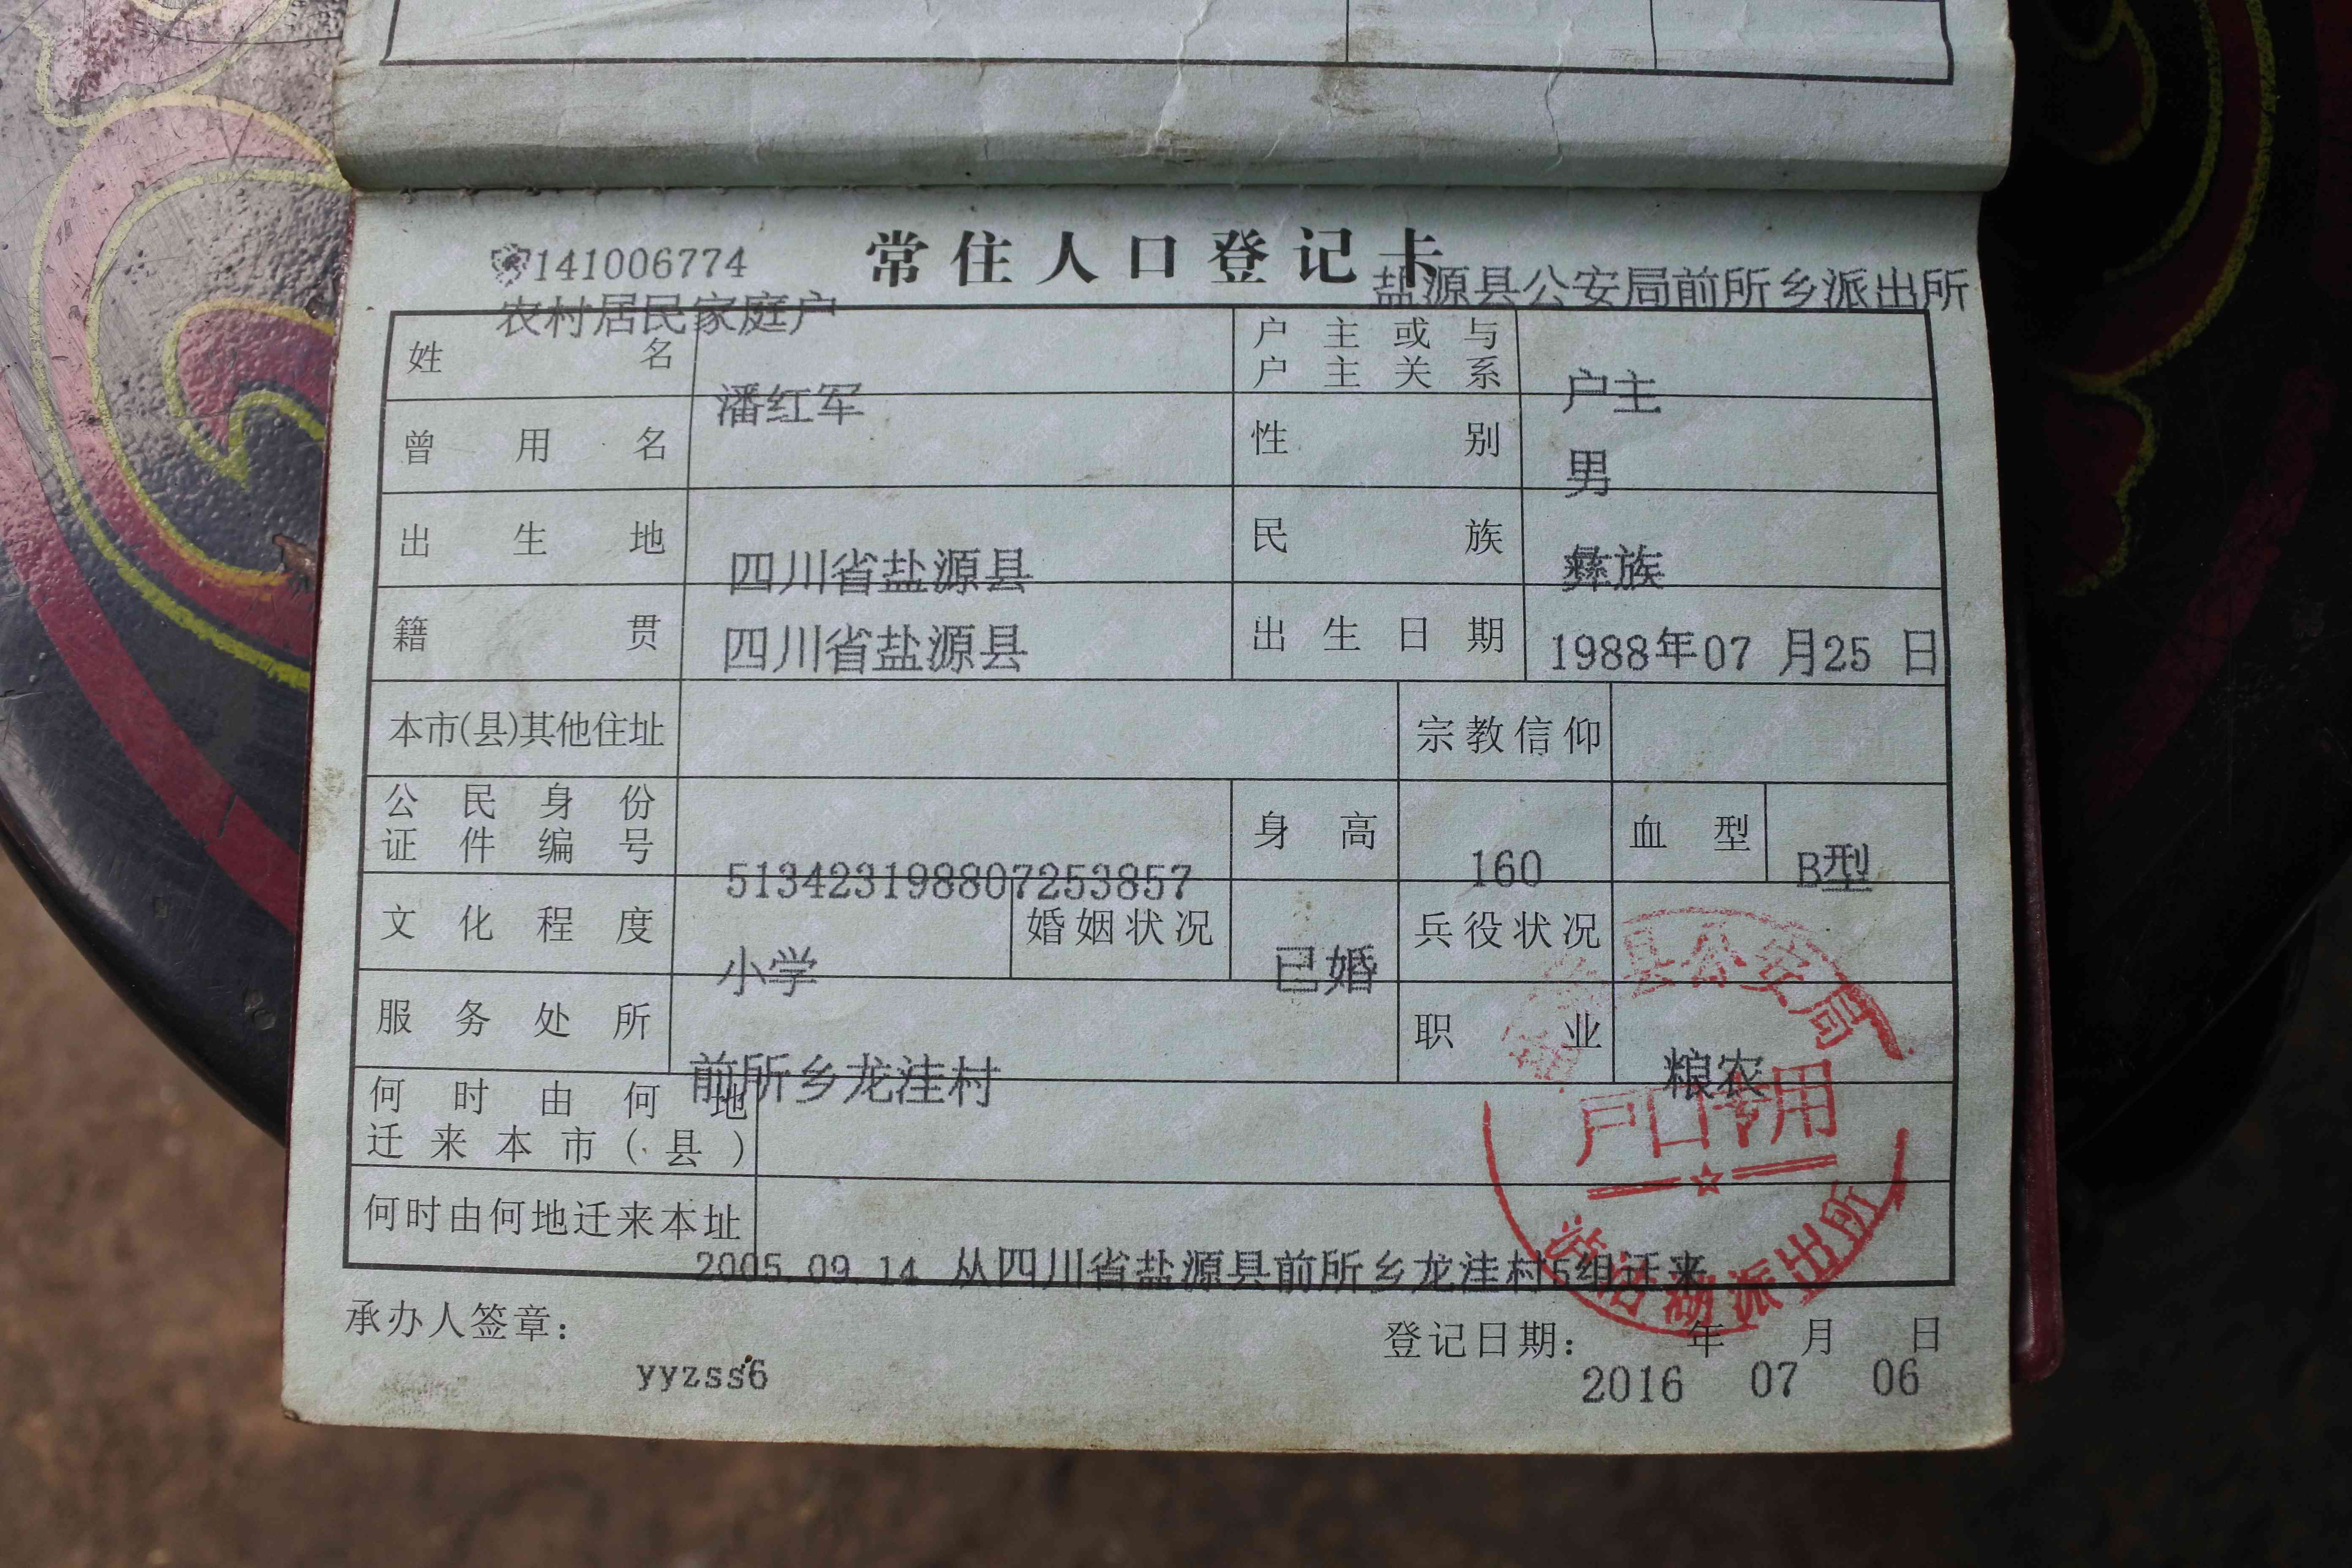 141006774 常住人口登记卡
盐源县公安局前所乡派出所
农村居民家庭户
姓名 潘红军 户主或与户主关系 户主
曾用名 性别 男
出生地 四川省盐源县 民族 彝族
籍贯 四川省盐源县 出生日期 1988年07月25日
本市(县)其他住址 宗教信仰
公民身份证件编号 513423198807253857 身高 160 血型 B型
文化程度 小学 婚姻状况 已婚 兵役状况
服务处所 前所乡龙洼村 职业 粮农
何时由何地迁来本市(县)
何时由何地迁来本址 2005.09.14 从四川省盐源县前所乡龙洼村5组迁来
县公安局
户口专用
泸沽湖派出所
承办人签章: yyzss6 登记日期: 2016年07月06日